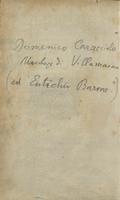 Domenico Caracciolo
Marchese di Villamaina
(ed Eustachio Barone?)